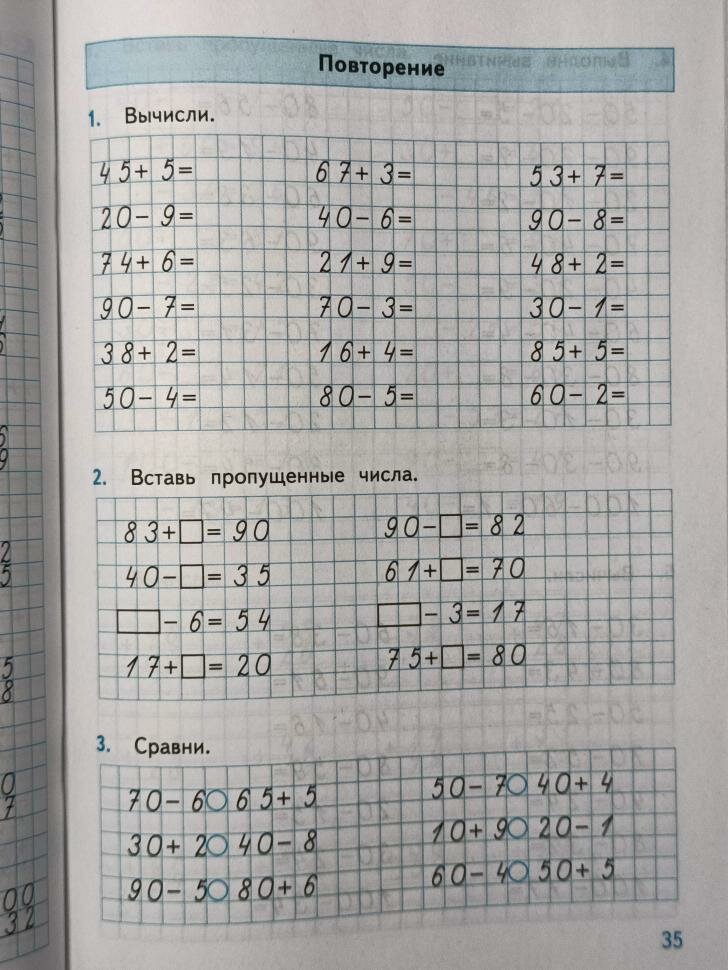 Повторение
1. Вычисли.
45+ 5= 67+ 3= 53+ 7=
20− 9= 40− 6= 90− 8=
74+ 6= 21+ 9= 48+ 2=
90− 7= 70− 3= 30− 1=
38+ 2= 16+ 4= 85+ 5=
50− 4= 80− 5= 60− 2=
2. Вставь пропущенные числа.
83+□= 90 90−□= 82
40−□= 35 61+□= 70
□− 6= 54 □− 3= 17
17+□= 20 75+□= 80
3. Сравни.
70− 6○ 65+ 5 50− 7○ 40+ 4
30+ 2○ 40− 8 10+ 9○ 20− 1
90− 5○ 80+ 6 60− 4○ 50+ 5
35